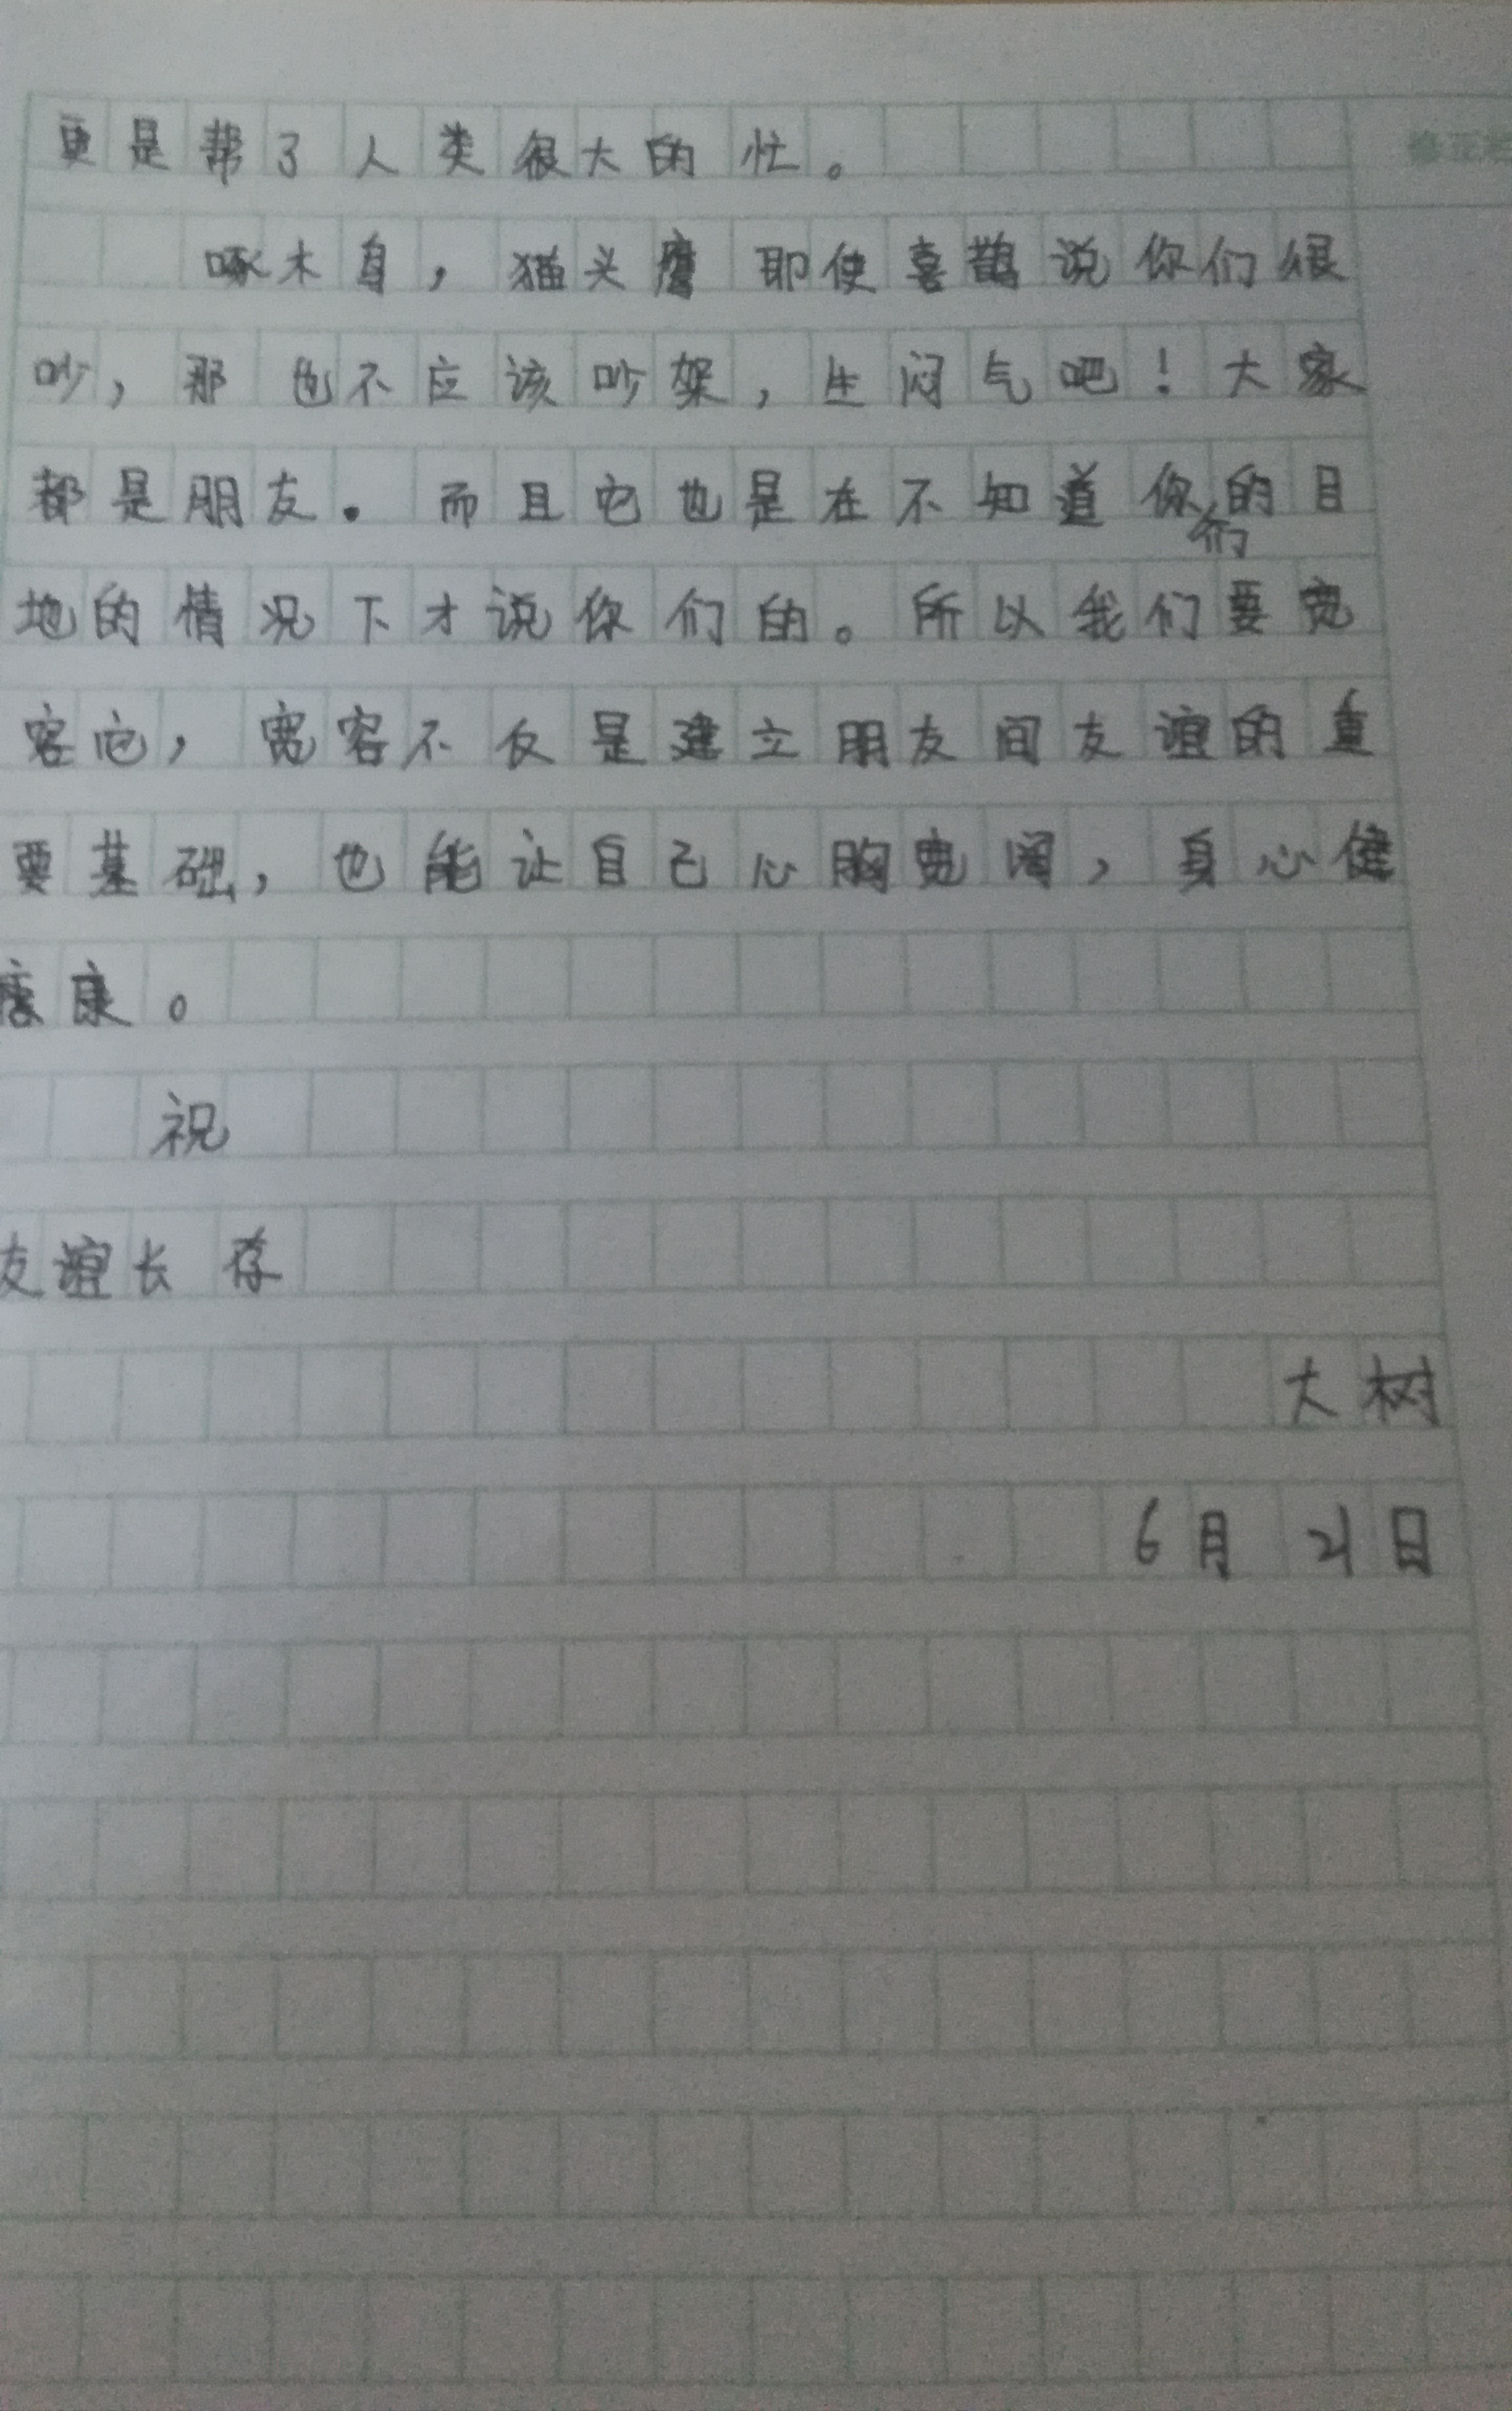 更是帮了人类很大的忙。
啄木鸟，猫头鹰即使喜鹊说你们很
吵，那也不应该吵架，生闷气吧！大家
都是朋友。而且它也是在不知道你们的目
地的情况下才说你们的。所以我们要宽
容它，宽容不仅是建立朋友间友谊的重
要基础，也能让自己心胸宽阔，身心健
康。
祝
友谊长存
大树
6月21日